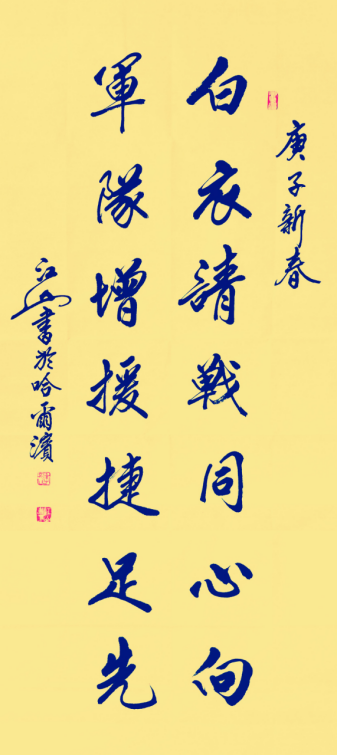 庚子新春
白衣請戰同心向
軍隊增援捷足先
江山書於哈爾濱